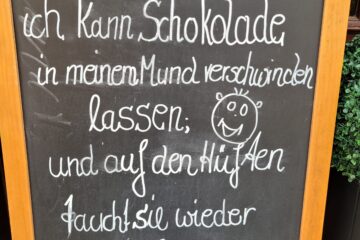 ich kann Schokolade
in meinen Mund verschwinden
lassen;
und auf den Hüften
taucht sie wieder